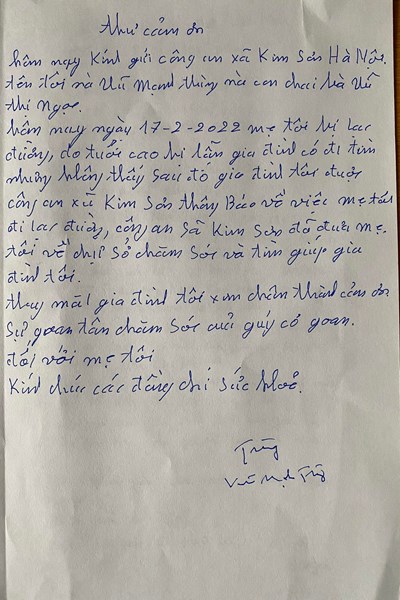 thư cảm ơn
hôm nay Kính gửi công an xã Kim Sơn Hà Nội.
tên tôi nà Vũ Mạnh thùng nà con chai bà Vũ
thị Ngọc.
hôm nay ngày 17-2-2022 mẹ tôi bị lạc
đường, do tuổi cao bị lẫn gia đình có đi tìm
nhưng không thấy sau đó gia đình tôi được
công an xã Kim Sơn thông Báo về việc mẹ tôi
đi lạc đường, công an Sã Kim Sơn đã đưa mẹ
tôi về chụ Sở chăm Sóc và tìm giúp gia
đình tôi.
thay mặt gia đình tôi xin chân thành cảm ơn
Sự goan tân chăm Sóc củi guý cơ goan.
đối với mẹ tôi
Kính chúc các đồng chí Sức khoẻ.
Vũ Mạnh